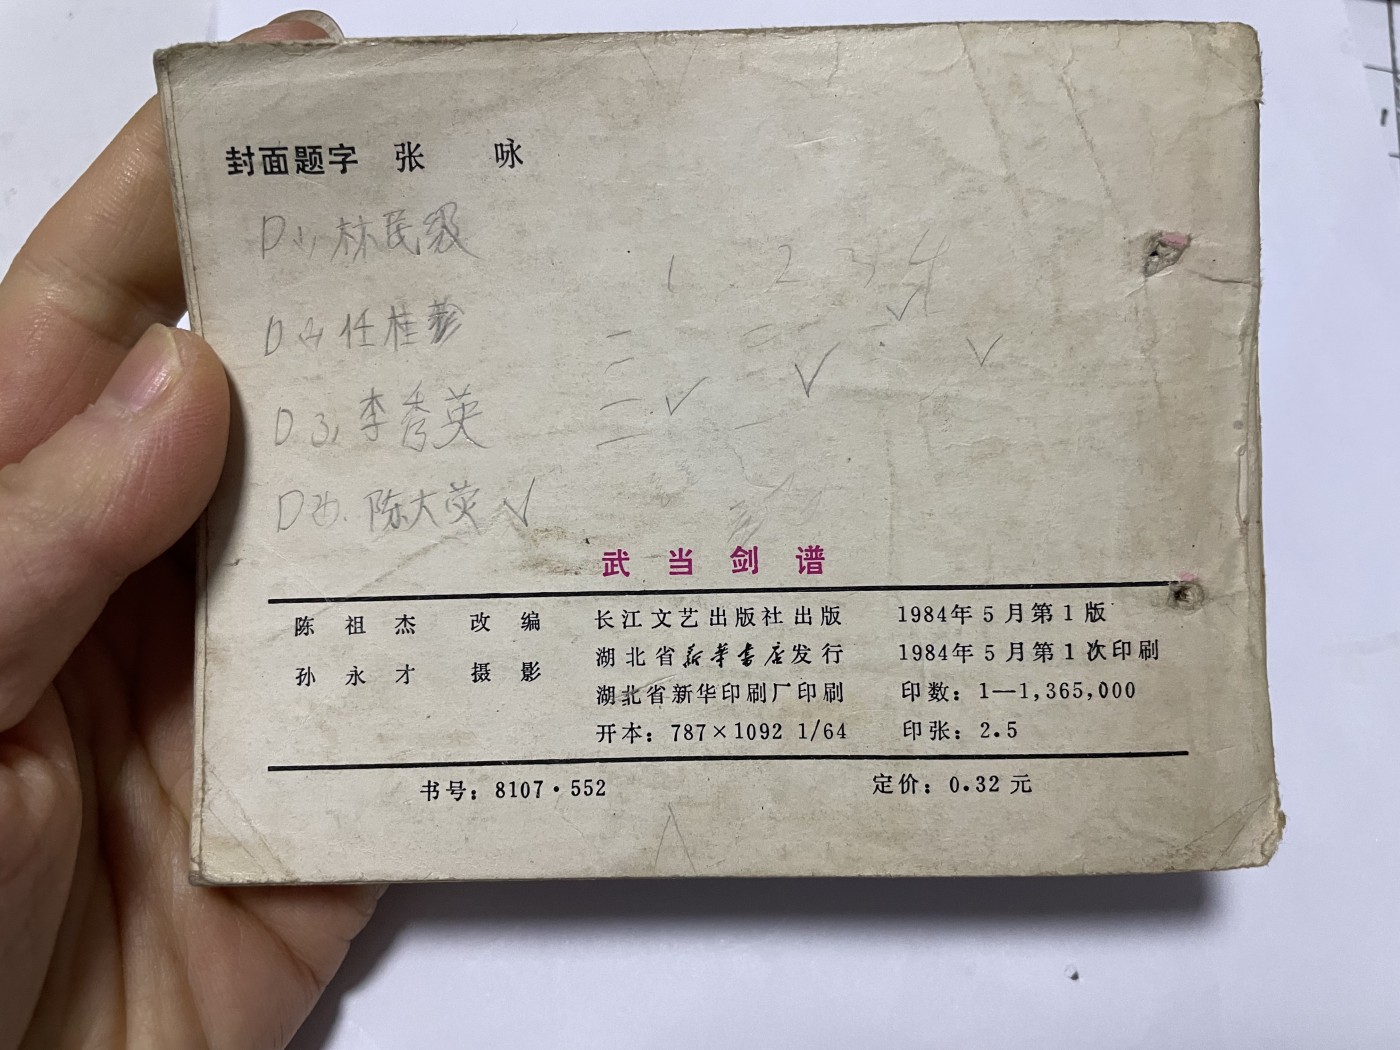 封面题字 张 咏
D 林民级
1 2 3 4
D 任桂
D 3, 李秀英
D 陈大英 ✓
武当剑谱
陈祖杰 改编 长江文艺出版社出版 1984年5月第1版
孙永才 摄影 湖北省新华书店发行 1984年5月第1次印刷
湖北省新华印刷厂印刷 印数：1—1,365,000
开本：787×1092 1/64 印张：2.5
书号：8107·552 定价：0.32元